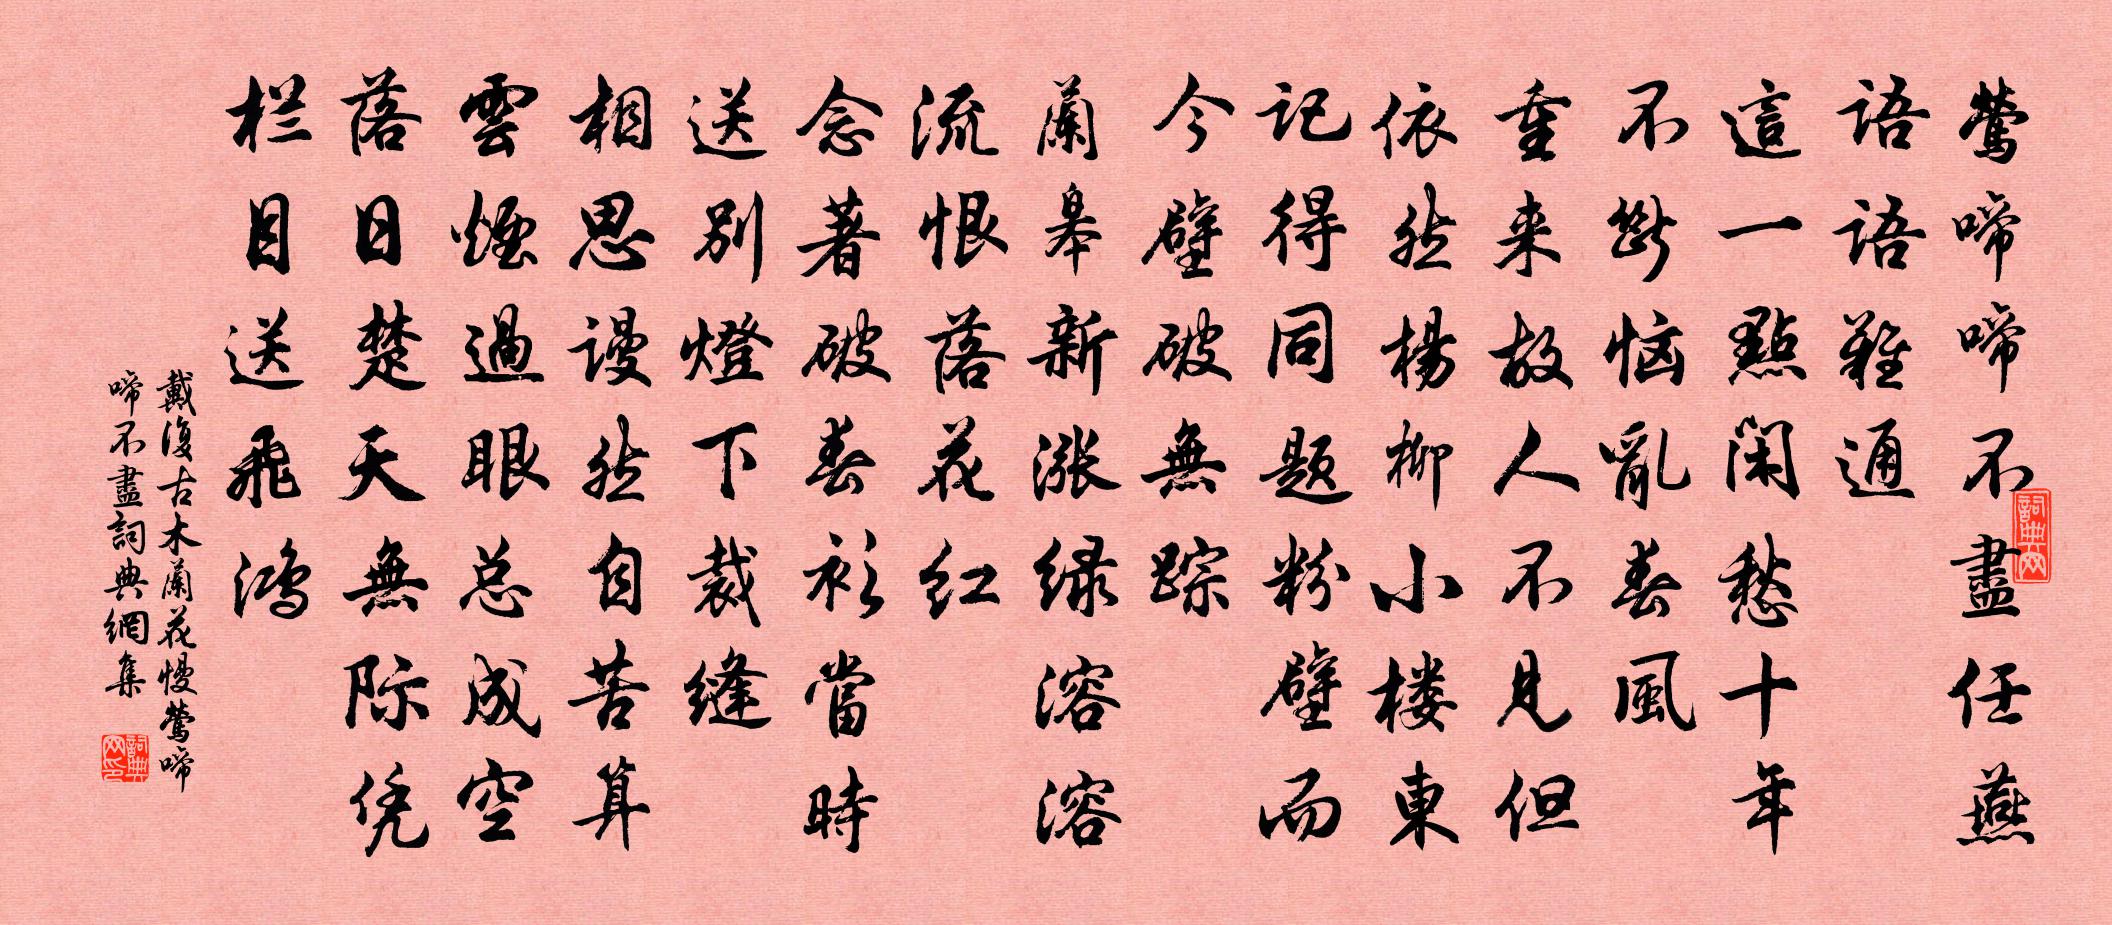 鶯啼啼不盡任燕
语语難通
這一點闲愁十年
不斷恼亂春風
重来故人不見但
依然楊柳小楼東
记得同题粉壁而
今壁破無踪
蘭皋新涨绿溶溶
流恨落花红
念著破春衫當時
送别燈下裁缝
相思謾然自苦算
雲煙過眼总成空
落日楚天無际凭
栏目送飛鸿
戴復古木蘭花慢鶯啼
啼不盡詞典網集
詞典网
詞典网印